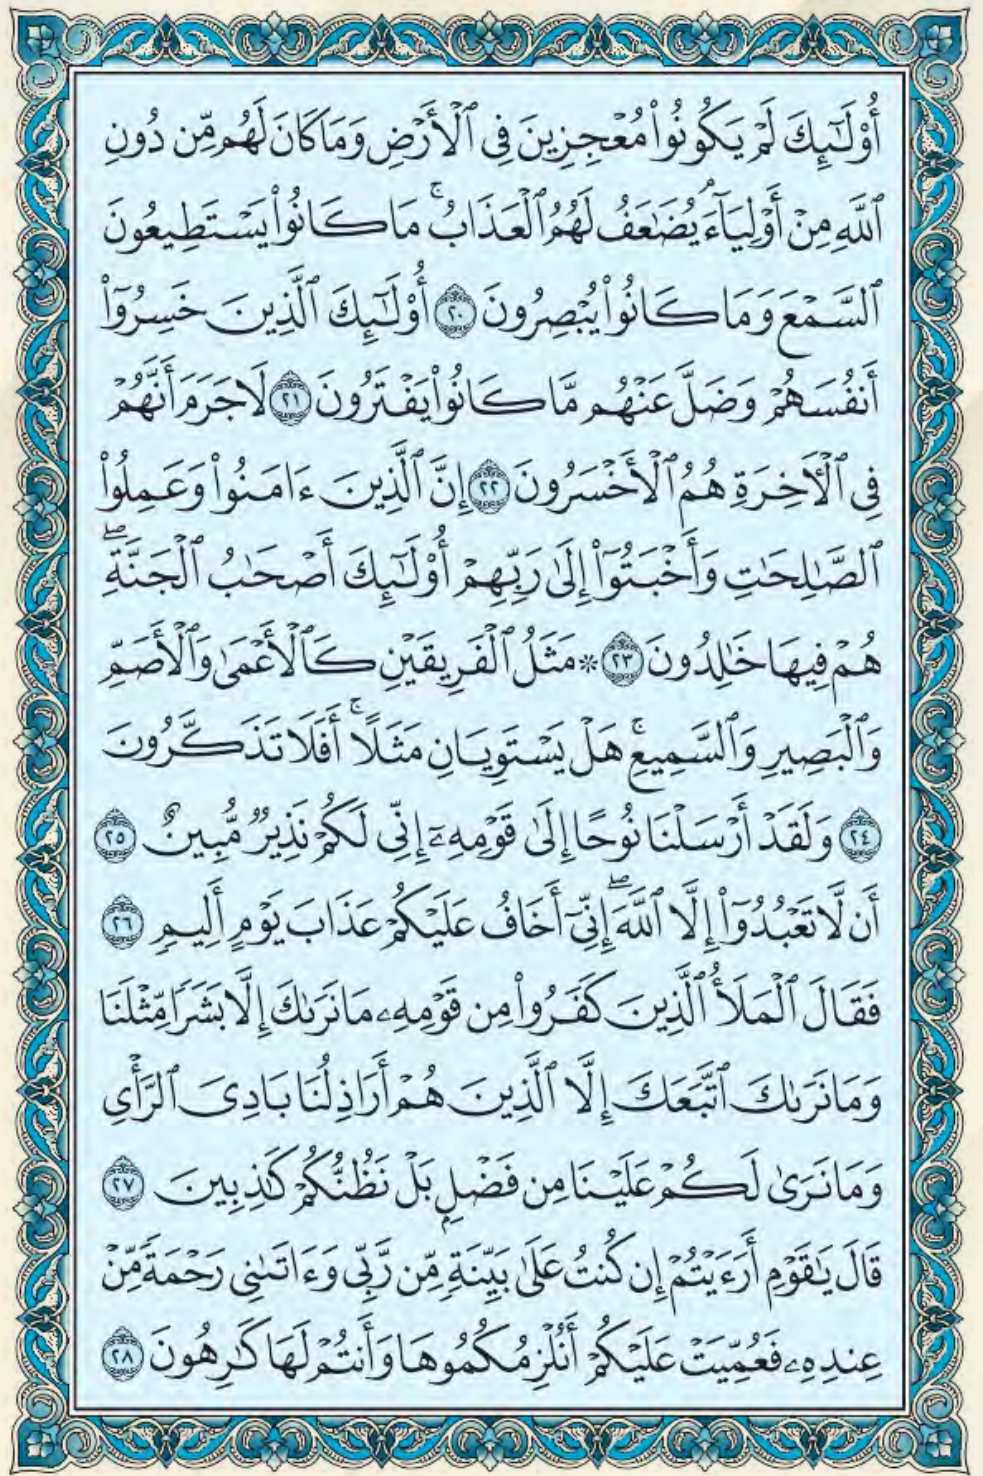 أُوْلَـٰٓئِكَ لَمْ يَكُونُوا۟ مُعْجِزِينَ فِى ٱلْأَرْضِ وَمَا كَانَ لَهُم مِّن دُونِ
ٱللَّهِ مِنْ أَوْلِيَآءَ ۘ يُضَـٰعَفُ لَهُمُ ٱلْعَذَابُ ۚ مَا كَانُوا۟ يَسْتَطِيعُونَ
ٱلسَّمْعَ وَمَا كَانُوا۟ يُبْصِرُونَ ٢٠ أُوْلَـٰٓئِكَ ٱلَّذِينَ خَسِرُوٓا۟
أَنفُسَهُمْ وَضَلَّ عَنْهُم مَّا كَانُوا۟ يَفْتَرُونَ ٢١ لَا جَرَمَ أَنَّهُمْ
فِى ٱلْـَٔاخِرَةِ هُمُ ٱلْأَخْسَرُونَ ٢٢ إِنَّ ٱلَّذِينَ ءَامَنُوا۟ وَعَمِلُوا۟
ٱلصَّـٰلِحَـٰتِ وَأَخْبَتُوٓا۟ إِلَىٰ رَبِّهِمْ أُوْلَـٰٓئِكَ أَصْحَـٰبُ ٱلْجَنَّةِ ۖ
هُمْ فِيهَا خَـٰلِدُونَ ٢٣ ۞ مَثَلُ ٱلْفَرِيقَيْنِ كَٱلْأَعْمَىٰ وَٱلْأَصَمِّ
وَٱلْبَصِيرِ وَٱلسَّمِيعِ ۚ هَلْ يَسْتَوِيَانِ مَثَلًا ۚ أَفَلَا تَذَكَّرُونَ
٢٤ وَلَقَدْ أَرْسَلْنَا نُوحًا إِلَىٰ قَوْمِهِۦٓ إِنِّى لَكُمْ نَذِيرٌ مُّبِينٌ ٢٥
أَن لَّا تَعْبُدُوٓا۟ إِلَّا ٱللَّهَ ۖ إِنِّىٓ أَخَافُ عَلَيْكُمْ عَذَابَ يَوْمٍ أَلِيمٍ ٢٦
فَقَالَ ٱلْمَلَأُ ٱلَّذِينَ كَفَرُوا۟ مِن قَوْمِهِۦ مَا نَرَىٰكَ إِلَّا بَشَرًا مِّثْلَنَا
وَمَا نَرَىٰكَ ٱتَّبَعَكَ إِلَّا ٱلَّذِينَ هُمْ أَرَاذِلُنَا بَادِىَ ٱلرَّأْىِ
وَمَا نَرَىٰ لَكُمْ عَلَيْنَا مِن فَضْلٍۭ بَلْ نَظُنُّكُمْ كَـٰذِبِينَ ٢٧
قَالَ يَـٰقَوْمِ أَرَءَيْتُمْ إِن كُنتُ عَلَىٰ بَيِّنَةٍ مِّن رَّبِّى وَءَاتَىٰنِى رَحْمَةً مِّنْ
عِندِهِۦ فَعُمِّيَتْ عَلَيْكُمْ أَنُلْزِمُكُمُوهَا وَأَنتُمْ لَهَا كَـٰرِهُونَ ٢٨